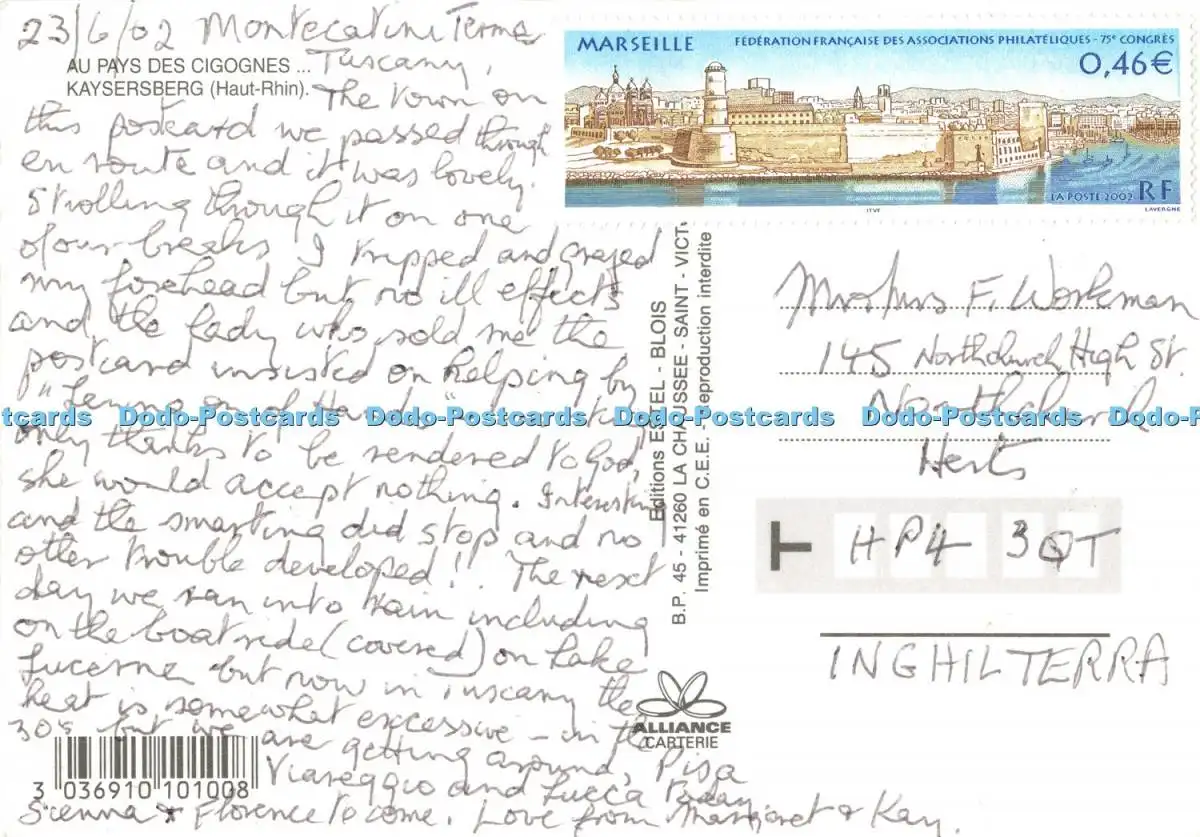 23/6/02 Montecatini Terme
AU PAYS DES CIGOGNES ... Tuscany,
KAYSERSBERG (Haut-Rhin). The town on
this postcard we passed through
en route and it was lovely.
Strolling through it on one
of our breaks I tripped and grazed
my forehead but no ill effects
and the lady who sold me the
postcard insisted on helping by
"
only thanks to be rendered to God,
she would accept nothing. Interesting
and the smarting did stop and no
other trouble developed!! The next
day we ran into rain including
on the boat ride (covered) on Lake
Lucerne but now in Tuscany the
heat is somewhat excessive - in the
30s but we are getting around, Pisa
Viareggio and Lucca today,
Sienna & Florence to come. Love from Margaret & Kay.
3 036910 101008
MARSEILLE
FÉDÉRATION FRANÇAISE DES ASSOCIATIONS PHILATÉLIQUES - 75e CONGRÈS
0,46€
LA POSTE 2002 RF
ITVF
LAVERGNE
Editions ESTEL - BLOIS
B.P. 45 - 41260 LA CHAUSSEE - SAINT - VICT
Imprimé en C.E.E. reproduction interdite
ALLIANCE
CARTERIE
Mr & Mrs F. Workman
145 Northchurch High St.
Northchurch
Herts
HP4 3QT
INGHILTERRA
Dodo-Postcards Dodo-Postcards Dodo-Postcards Dodo-Postcards